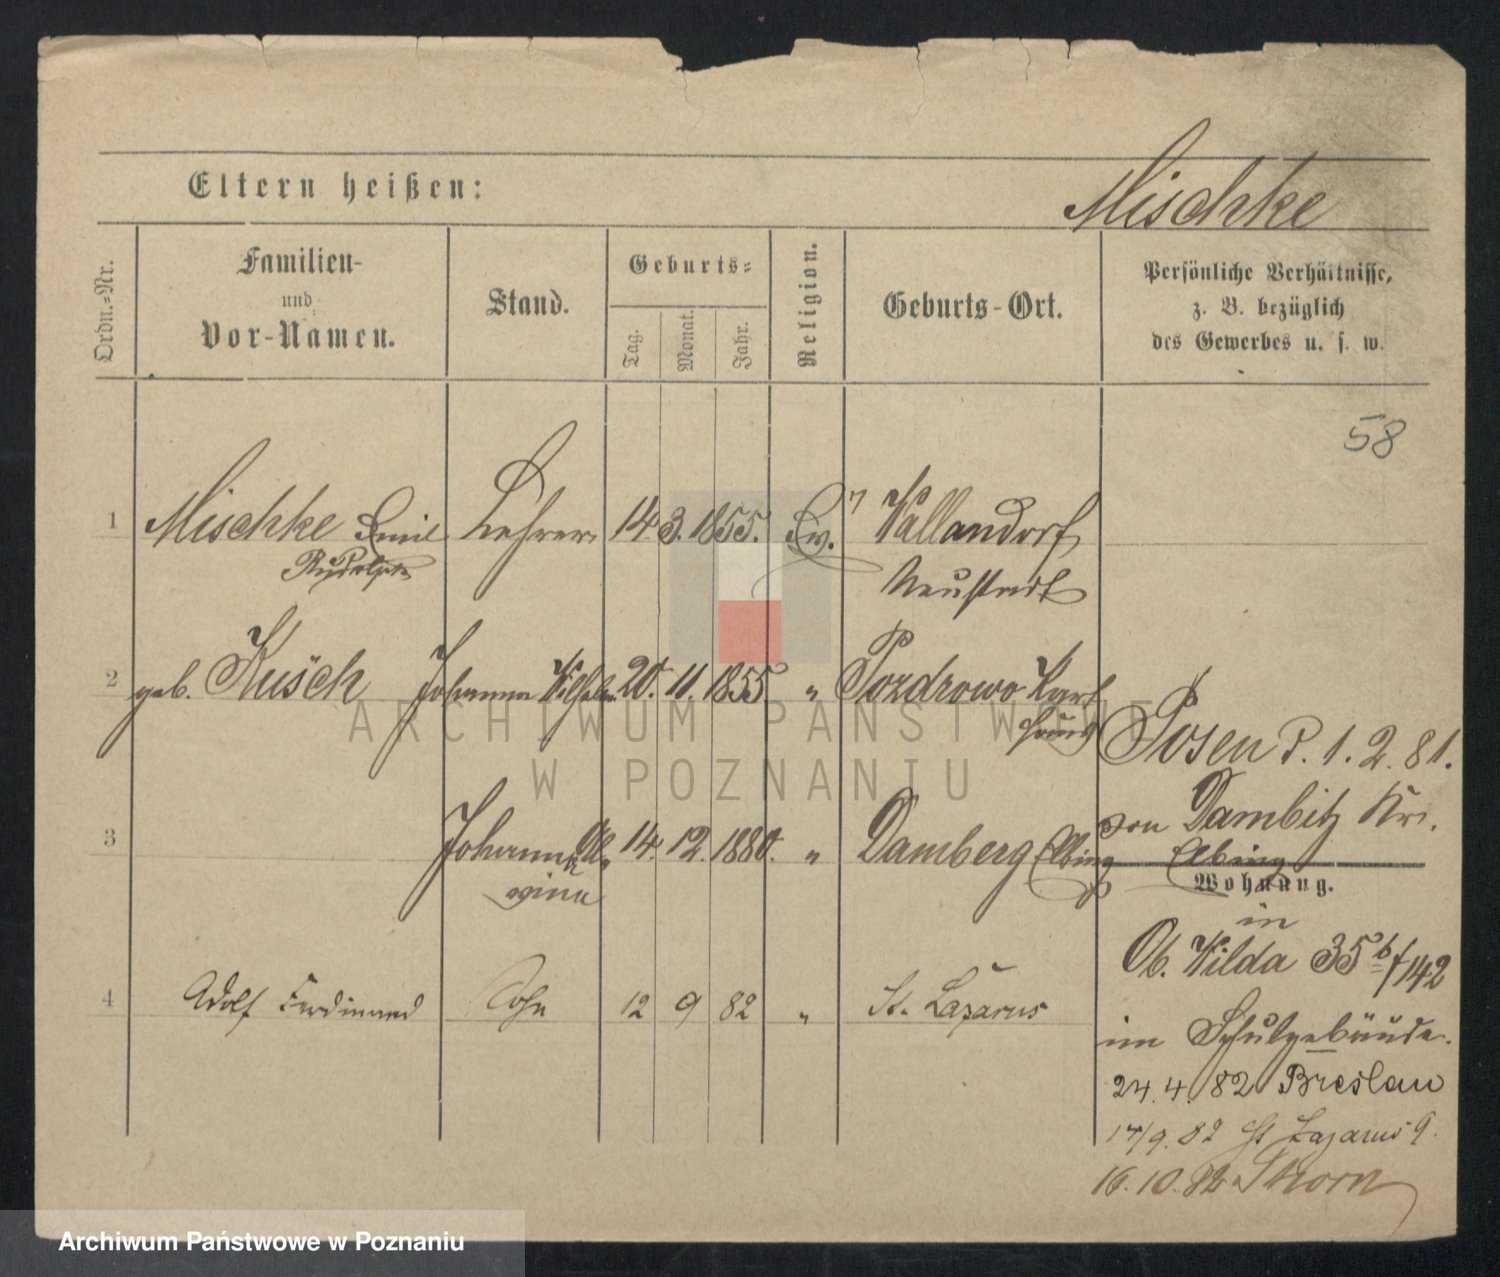 Eltern heißen:
Mischke
Ordn.-Nr.
Familien-
und
Vor-Namen.
Stand.
Geburts-
Tag.
Monat.
Jahr.
Religion.
Geburts-Ort.
Persönliche Verhältnisse,
z. B. bezüglich
des Gewerbes u. s. w.
58
1 Mischke Emil Lehrer 14. 3. 1855. Ev. Wallandorf
Rudolph
Neustadt
2 geb. Kusch Johanna 20. 11. 1855. " Pozdrowo
Posen d. 1. 2. 81.
von Dambitz Kr.
3 Johanna 14. 12. 1880. " Damberg Elbing
Elbing
wina
Wohnung.
in
Ob. Wilda 35 b/142
4 Adolf Ferdinand Sohn 12 9 82 " St. Lazarus
im Schulgebäude.
24. 4. 82 Breslau
17/9. 82 St Lazarus 9.
16. 10. 82 Thorn
ARCHIWUM PAŃSTWOWE
W POZNANIU
Archiwum Państwowe w Poznaniu